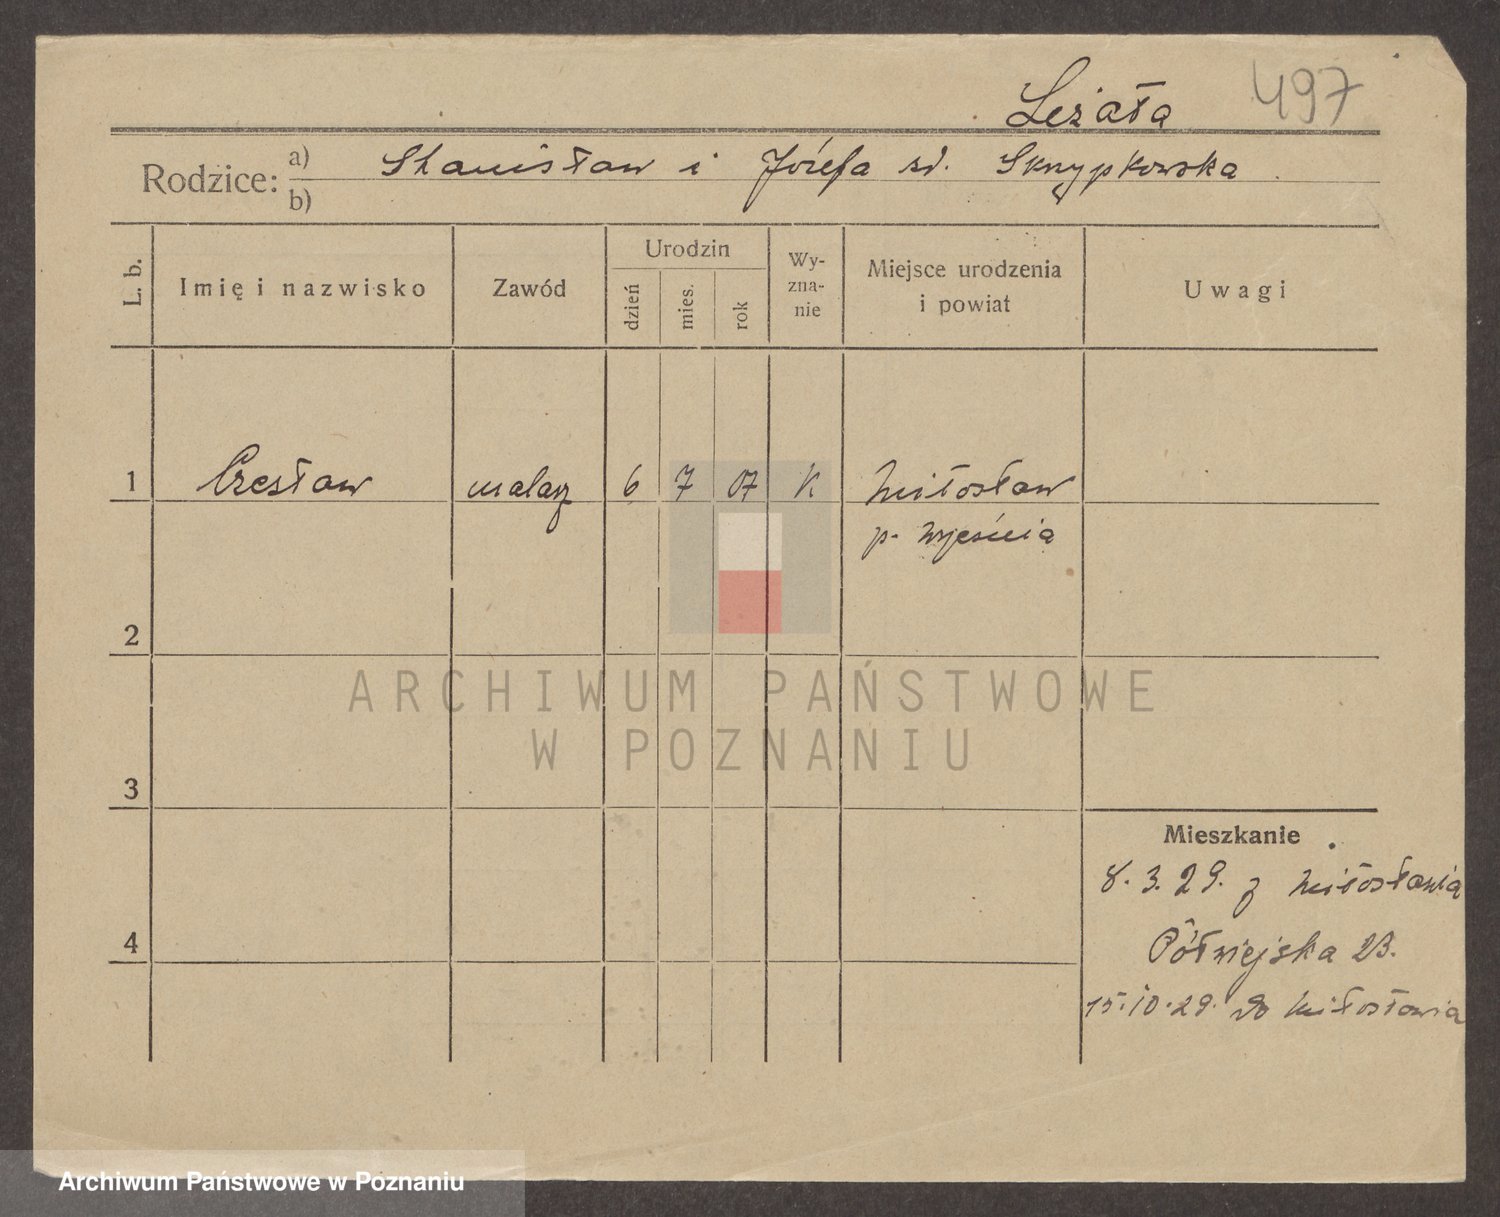 Leżała 497
Rodzice: a) Stanisław i Józefa zd. Skrzypkowska
b)
L. b. Imię i nazwisko Zawód Urodzin Wy-zna-nie Miejsce urodzenia i powiat Uwagi
dzień mies. rok
1 Czesław malarz 6 7 07 K Miłosław
p. Września
2
3
Mieszkanie
8.3.29. z Miłosławia
4 Półwiejska 23.
15.10.29. do Miłosławia
ARCHIWUM PAŃSTWOWE
W POZNANIU
Archiwum Państwowe w Poznaniu